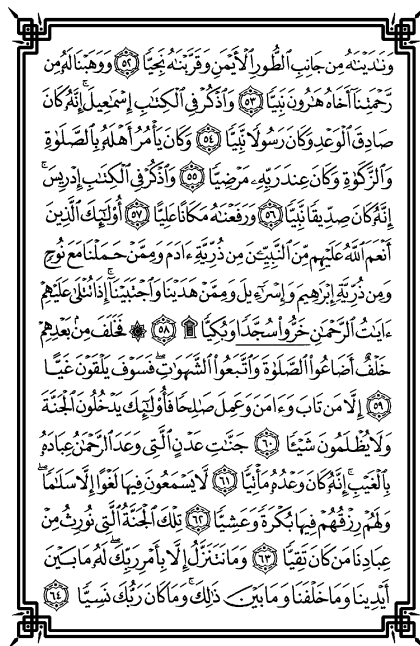 وَنَٰدَيْنَٰهُ مِن جَانِبِ ٱلطُّورِ ٱلْأَيْمَنِ وَقَرَّبْنَٰهُ نَجِيًّا ٥٢ وَوَهَبْنَا لَهُۥ مِن
رَّحْمَتِنَآ أَخَاهُ هَٰرُونَ نَبِيًّا ٥٣ وَٱذْكُرْ فِى ٱلْكِتَٰبِ إِسْمَٰعِيلَ ۚ إِنَّهُۥ كَانَ
صَادِقَ ٱلْوَعْدِ وَكَانَ رَسُولًا نَّبِيًّا ٥٤ وَكَانَ يَأْمُرُ أَهْلَهُۥ بِٱلصَّلَوٰةِ
وَٱلزَّكَوٰةِ وَكَانَ عِندَ رَبِّهِۦ مَرْضِيًّا ٥٥ وَٱذْكُرْ فِى ٱلْكِتَٰبِ إِدْرِيسَ ۚ
إِنَّهُۥ كَانَ صِدِّيقًا نَّبِيًّا ٥٦ وَرَفَعْنَٰهُ مَكَانًا عَلِيًّا ٥٧ أُو۟لَٰٓئِكَ ٱلَّذِينَ
أَنْعَمَ ٱللَّهُ عَلَيْهِم مِّنَ ٱلنَّبِيِّـۧنَ مِن ذُرِّيَّةِ ءَادَمَ وَمِمَّنْ حَمَلْنَا مَعَ نُوحٍ
وَمِن ذُرِّيَّةِ إِبْرَٰهِيمَ وَإِسْرَٰٓءِيلَ وَمِمَّنْ هَدَيْنَا وَٱجْتَبَيْنَآ ۚ إِذَا تُتْلَىٰ عَلَيْهِمْ
ءَايَٰتُ ٱلرَّحْمَٰنِ خَرُّوا۟ سُجَّدًا وَبُكِيًّا ۩ ٥٨ ۞ فَخَلَفَ مِنۢ بَعْدِهِمْ
خَلْفٌ أَضَاعُوا۟ ٱلصَّلَوٰةَ وَٱتَّبَعُوا۟ ٱلشَّهَوَٰتِ ۖ فَسَوْفَ يَلْقَوْنَ غَيًّا
٥٩ إِلَّا مَن تَابَ وَءَامَنَ وَعَمِلَ صَٰلِحًا فَأُو۟لَٰٓئِكَ يَدْخُلُونَ ٱلْجَنَّةَ
وَلَا يُظْلَمُونَ شَيْـًٔا ٦٠ جَنَّٰتِ عَدْنٍ ٱلَّتِى وَعَدَ ٱلرَّحْمَٰنُ عِبَادَهُۥ
بِٱلْغَيْبِ ۚ إِنَّهُۥ كَانَ وَعْدُهُۥ مَأْتِيًّا ٦١ لَّا يَسْمَعُونَ فِيهَا لَغْوًا إِلَّا سَلَٰمًا ۖ
وَلَهُمْ رِزْقُهُمْ فِيهَا بُكْرَةً وَعَشِيًّا ٦٢ تِلْكَ ٱلْجَنَّةُ ٱلَّتِى نُورِثُ مِنْ
عِبَادِنَا مَن كَانَ تَقِيًّا ٦٣ وَمَا نَتَنَزَّلُ إِلَّا بِأَمْرِ رَبِّكَ ۖ لَهُۥ مَا بَيْنَ
أَيْدِينَا وَمَا خَلْفَنَا وَمَا بَيْنَ ذَٰلِكَ ۚ وَمَا كَانَ رَبُّكَ نَسِيًّا ٦٤